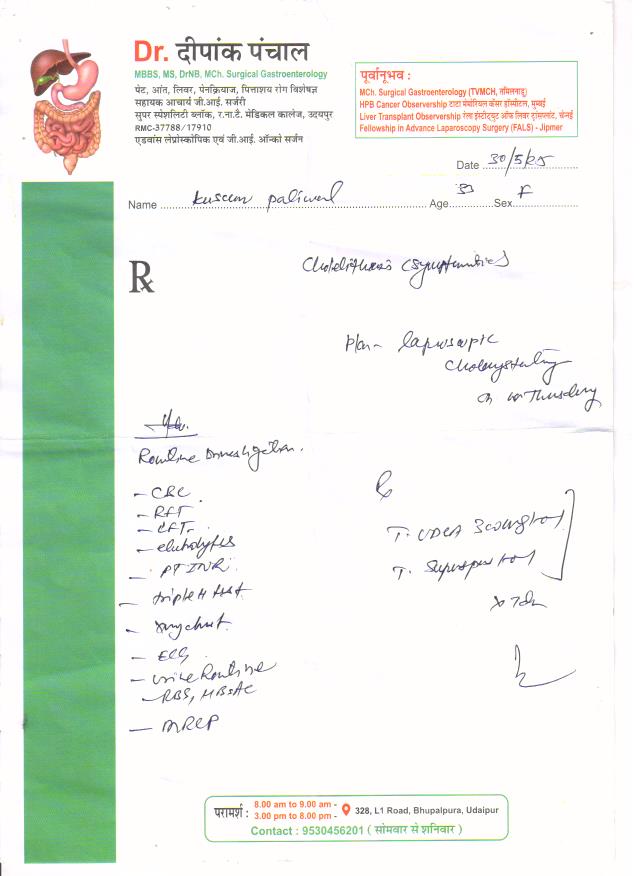 Dr. दीपांक पंचाल
MBBS, MS, DrNB, MCh. Surgical Gastroenterology
पेट, आंत, लिवर, पेनक्रियाज, पित्ताशय रोग विशेषज्ञ
सहायक आचार्य जी.आई. सर्जरी
सुपर स्पेशलिटी ब्लॉक, र.ना.टै. मेडिकल कालेज, उदयपुर
RMC-37788/17910
एडवांस लेप्रोस्कोपिक एवं जी.आई. ऑन्को सर्जन
पूर्वानुभव :
MCh. Surgical Gastroenterology (TVMCH, तमिलनाडु)
HPB Cancer Observership टाटा मेमोरियल कैंसर हॉस्पीटल, मुम्बई
Liver Transplant Observership रेला इंस्टीट्यूट ऑफ लिवर ट्रांसप्लांट, चेन्नई
Fellowship in Advance Laparoscopy Surgery (FALS) - Jipmer
Date 30/5/25
Name Kusum paliwal Age Sex F
Rx
Cholelithiasis (Symptomatic)
Plan - laparoscopic
Cholecystectomy
on Thursday
Adv.
Routine Investigation.
- CBC
- RFT
- LFT
- electrolytes
- PT INR
- triple H test
- Xray chest
- ECG
- Urine Routine
- RBS, HBsAC
- MRCP
Rx
T. UDCA 300mg
T.
x 7d
परामर्श : 8.00 am to 9.00 am -
3.00 pm to 8.00 pm -
328, L1 Road, Bhupalpura, Udaipur
Contact : 9530456201 ( सोमवार से शनिवार )